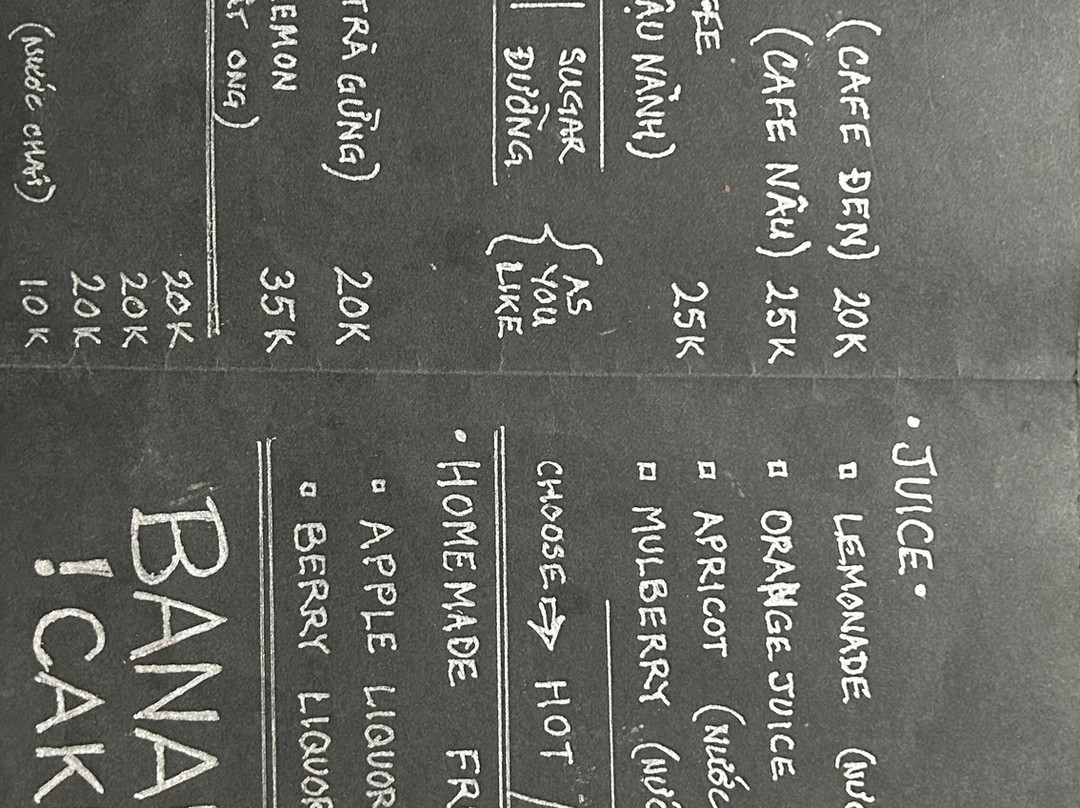 (CAFE ĐEN) 20K
(CAFE NÂU) 25K
FEE 25K
ẬU NÀNH)
SUGAR
ĐƯỜNG
AS
YOU
LIKE
TRÀ GỪNG) 20K
EMON 35K
ẬT ONG)
20K
20K
20K
(NƯỚC CHAI) 10K
• JUICE •
▫ LEMONADE (NƯ
▫ ORANGE JUICE
▫ APRICOT (NƯỚC
▫ MULBERRY (NƯỚ
CHOOSE ⇒ HOT /
• HOMEMADE FR
▫ APPLE LIQUOR
▫ BERRY LIQUOR
BANA
! CAK